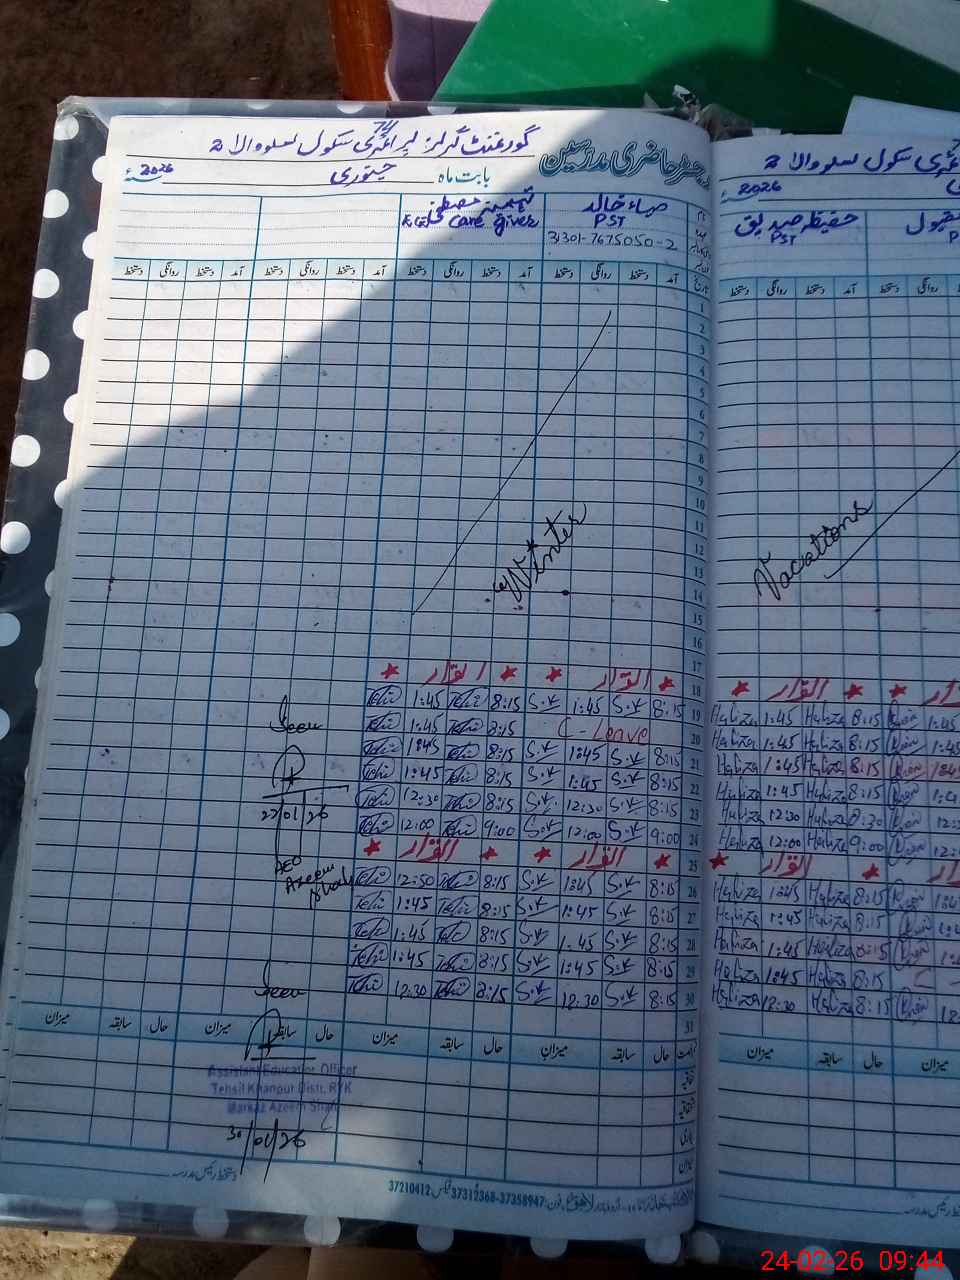 رجسٹر حاضری مدرسین
گورنمنٹ گرلز پرائمری سکول لسلو والا 2
بابت ماہ جنوری 2026
صباء خالد
PST
31301-7675050-2
تہمینہ مصطفیٰ
care giver
آمد دستخط روانگی دستخط آمد دستخط روانگی دستخط آمد دستخط روانگی دستخط آمد دستخط روانگی دستخط
تاریخ
1
2
3
4
5
6
7
8
9
10
11
12
13
14
15
16
17
Winter
18 اتوار اتوار
19 8:15 S.K 1:45 S.K 8:15 1:45
20 C-Leave 8:15 1:45
21 8:15 S.K 1:45 S.K 8:15 1:45
22 8:15 S.K 1:45 S.K 8:15 1:45
23 8:15 S.K 12:30 S.K 8:15 12:30
24 9:00 S.K 12:00 S.K 9:00 12:00
25 اتوار اتوار
26 8:15 S.K 1:45 S.K 8:15 12:50
27 8:15 S.K 1:45 S.K 8:15 1:45
28 8:15 S.K 1:45 S.K 8:15 1:45
29 8:15 S.K 1:45 S.K 8:15 1:45
30 8:15 S.K 12:30 S.K 8:15 12:30
31
Seen
22/01/26
AEO
Azeem
Shah
Seen
حال سابقہ میزان حال سابقہ میزان حال سابقہ میزان حال سابقہ میزان
میزان
Assistant Education Officer
Tehsil Khanpur Distt. RYK
Markaz Azeem Shah
30/01/26
دستخط رئیس مدرسہ
37312368-37358947 37210412
سکول لسلو والا 2
2026
حفیظہ صدیق
PST
آمد دستخط روانگی دستخط
Vacations
اتوار
Hafiza 8:15 Hafiza 1:45
Hafiza 8:15 Hafiza 1:45
Hafiza 8:15 Hafiza 1:45
Hafiza 8:15 Hafiza 1:45
Hafiza 8:30 Hafiza 12:30
Hafiza 9:00 Hafiza 12:00
اتوار
Hafiza 8:15 Hafiza 1:45
Hafiza 8:15 Hafiza 1:45
Hafiza 8:15 Hafiza 1:45
Hafiza 8:15 Hafiza 1:45
Hafiza 8:15 Hafiza 12:30
حال سابقہ میزان
میزان
دستخط رئیس مدرسہ
24-02-26 09:44